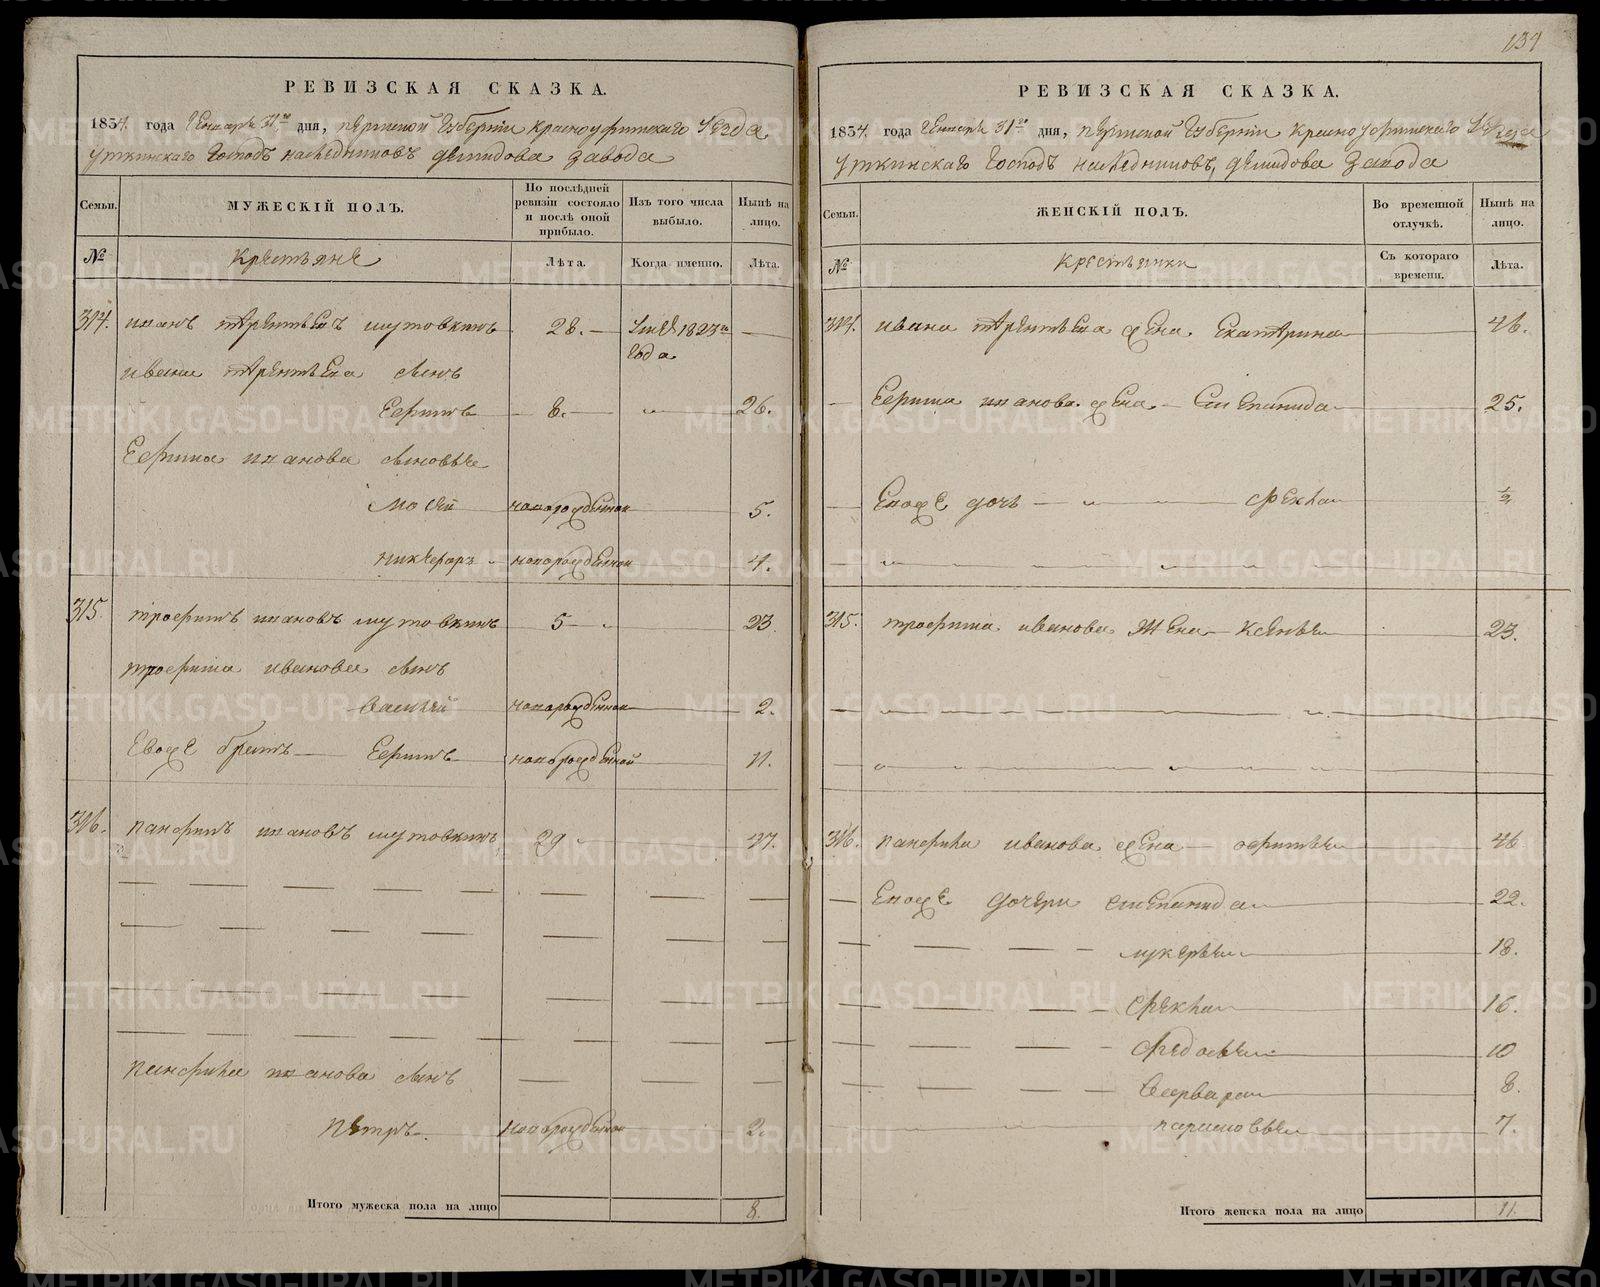 134
РЕВИЗСКАЯ СКАЗКА.
1834. года Генваря 31го дня, пермской Губернии красноуфимского Уезда
Уткинскаго Господъ наследниковъ демидова завода
Семьи. МУЖЕСКІЙ ПОЛЪ. По послѣдней ревизіи состояло и послѣ оной прибыло. Изъ того числа выбыло. Нынѣ на лицо.
№ Крестьяне Лѣта. Когда именно. Лѣта.
314. иванъ терентьевъ шутовкинъ 28. — Умеръ 1823го года —
ивана терентьева сынъ
Ефимъ — 8. — „ 26.
Ефима иванова сыновье
Мосей новорожденной 5.
никифоръ новорожденной 4.
315. трофимъ ивановъ шутовкинъ 5 — 23
трофима иванова сынъ
василей новорожденной 2.
Евоже братъ — Ефимъ новорожденной 11.
316. панфилъ ивановъ шутовкинъ 29 47.
панфила иванова сынъ
петръ новорожденной 2.
Итого мужеска пола на лицо 8.
РЕВИЗСКАЯ СКАЗКА.
1834. года Генваря 31го дня, пермской Губернии красноуфимского Уезда
Уткинскаго Господъ наследниковъ, демидова завода
Семьи. ЖЕНСКІЙ ПОЛЪ. Во временной отлучкѣ. Нынѣ на лицо.
№ Крестьянки Съ котораго времени. Лѣта.
314. ивана терентьева жена. Екатерина 46.
— Ефима иванова жена — Степанида 25.
— Евоже дочь — „ — „ — фекла ½
315. трофима иванова жена — Ксенья 23.
316. панфила иванова жена — афимья 46
— Евоже дочери степанида 22.
лукерья 18.
фекла 16.
федосья 10
варвара 8.
парасковья 7.
Итого женска пола на лицо 11.
METRIKI.GASO-URAL.RU